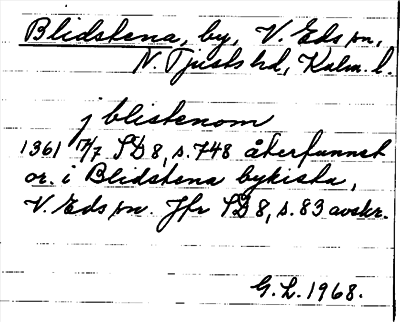 Blidstena, by, V. Eds sn,
N. Tjusts hd, Kalm. l.
j blistenom
1361 7/7 SD 8, s. 748 återfunnet
or. i Blidstena bykista,
V. Eds sn. Jfr SD 8, s. 83 avskr.
G. L. 1968.